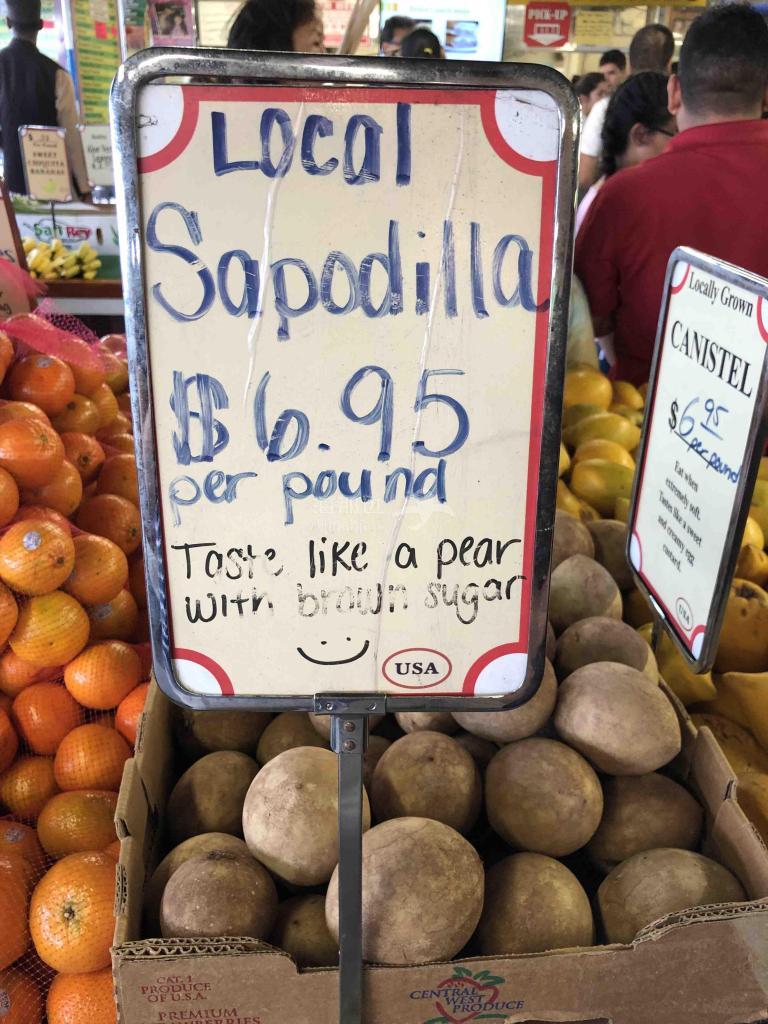 Local
Sapodilla
$6.95
per pound
Taste like a pear
with brown sugar
USA
Locally Grown
CANISTEL
$6.95
per pound
Eat when
extremely soft.
Tastes like a sweet
and creamy egg
custard.
USA
PICK-UP
SWEET
CHIQUITA
BANANAS
CAT. 1
PRODUCE
OF U.S.A.
PREMIUM
CENTRAL
WEST PRODUCE